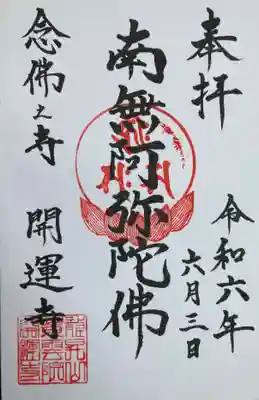 奉拝
令和六年
六月三日
南無阿弥陀佛
念佛之寺 開運寺